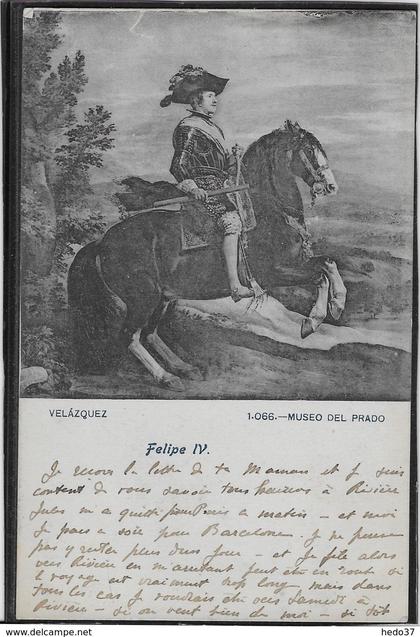 VELÁZQUEZ
1.066.—MUSEO DEL PRADO
Felipe IV.
Je reçois la lettre de ta Maman et je suis
content de vous savoir tous heureux à Rivière
Jules m a quitté pour Paris a matin - et moi
Je pars a soir pour Barcelone. Je ne pense
pas y rester plus d'un jour - et je file alors
vers Rivière en m'arretant peut etre en route si
le voyage est vraiment trop long - mais dans
tous les cas je voudrais etre vers Samedi à
Rivière - si on veut bien de moi - si tôt
hedo37 - https://www.delcampe.net